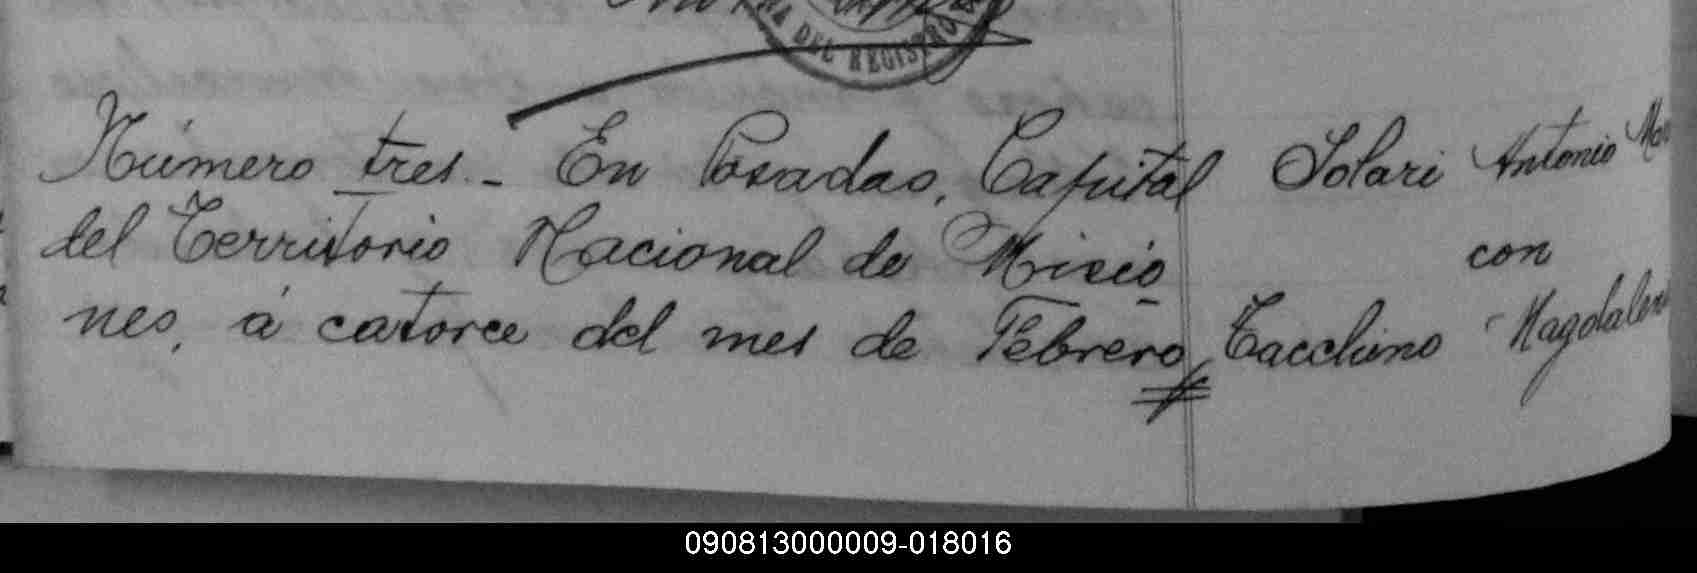 DEL REGISTRO
Número tres.- En Posadas, Capital
del Territorio Nacional de Misio
nes, á catorce del mes de Febrero
Solari Antonio
con
Tacchino Magdalen
090813000009-018016